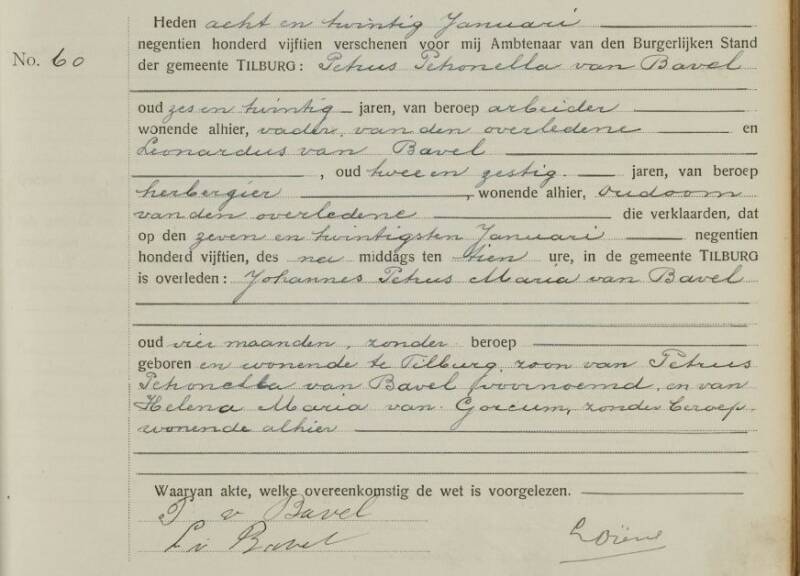 Heden acht en twintig Januari
No. 60
negentien honderd vijftien verschenen voor mij Ambtenaar van den Burgerlijken Stand
der gemeente TILBURG: Petrus Petronella van Bavel
oud zes en twintig jaren, van beroep arbeider
wonende alhier, vader van den overledene en
Leonardus van Bavel
, oud twee en zestig jaren, van beroep
herbergier, wonende alhier, oudoom
van den overledene die verklaarden, dat
op den zeven en twintigsten Januari negentien
honderd vijftien, des na middags ten tien ure, in de gemeente TILBURG
is overleden: Johannes Petrus Maria van Bavel
oud vier maanden, zonder beroep
geboren en wonende te Tilburg, zoon van Petrus
Petronella van Bavel voornoemd, en van
Helena Maria van Gorcum, zonder beroep,
wonende alhier
Waarvan akte, welke overeenkomstig de wet is voorgelezen.
P v Bavel
L v Bavel